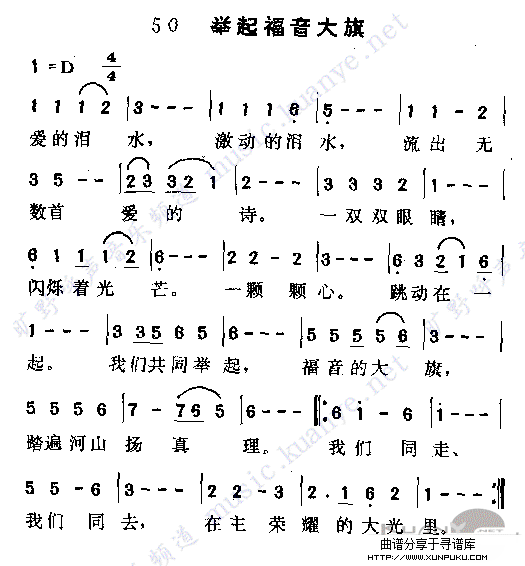 50 举起福音大旗
1=D 4/4
1 1 1 2 | 3 - - - | 1 1 1 6 | 5 - - - | 1 1 - 2 |
爱的泪 水， 激动的泪 水， 流出 无
3 5 - - | 2 3 3 2 1 | 2 - - - | 3 3 3 2 | 1 - - - |
数首 爱 的 诗。 一双双眼 睛，
6 1 1 1 2 | 6 - - - | 2 2 - 2 | 3 - - - | 6 3 2 1 6 |
闪烁着光 芒。 一颗 颗心。 跳动在 一
1 - - - | 3 3 5 6 5 | 6 - - - | 5 5 5 5 6 | 3 - - - |
起。 我们共同举 起， 福音的大 旗，
5 5 5 6 | 7 - 7 6 5 | 6 - - - |: 6 6 - 6 | 3 - - - |
踏遍河山 扬 真 理。 我们 同走、
5 5 - 6 | 3 - - - | 2 2 - 3 | 2. 1 6 5 6 | 1 - - - :|
我们 同去， 在主 荣 耀 的大光 里。
旷野呼声音乐频道 music.kuanye.net
曲谱分享于寻谱库
HTTP://WWW.XUNPUKU.COM